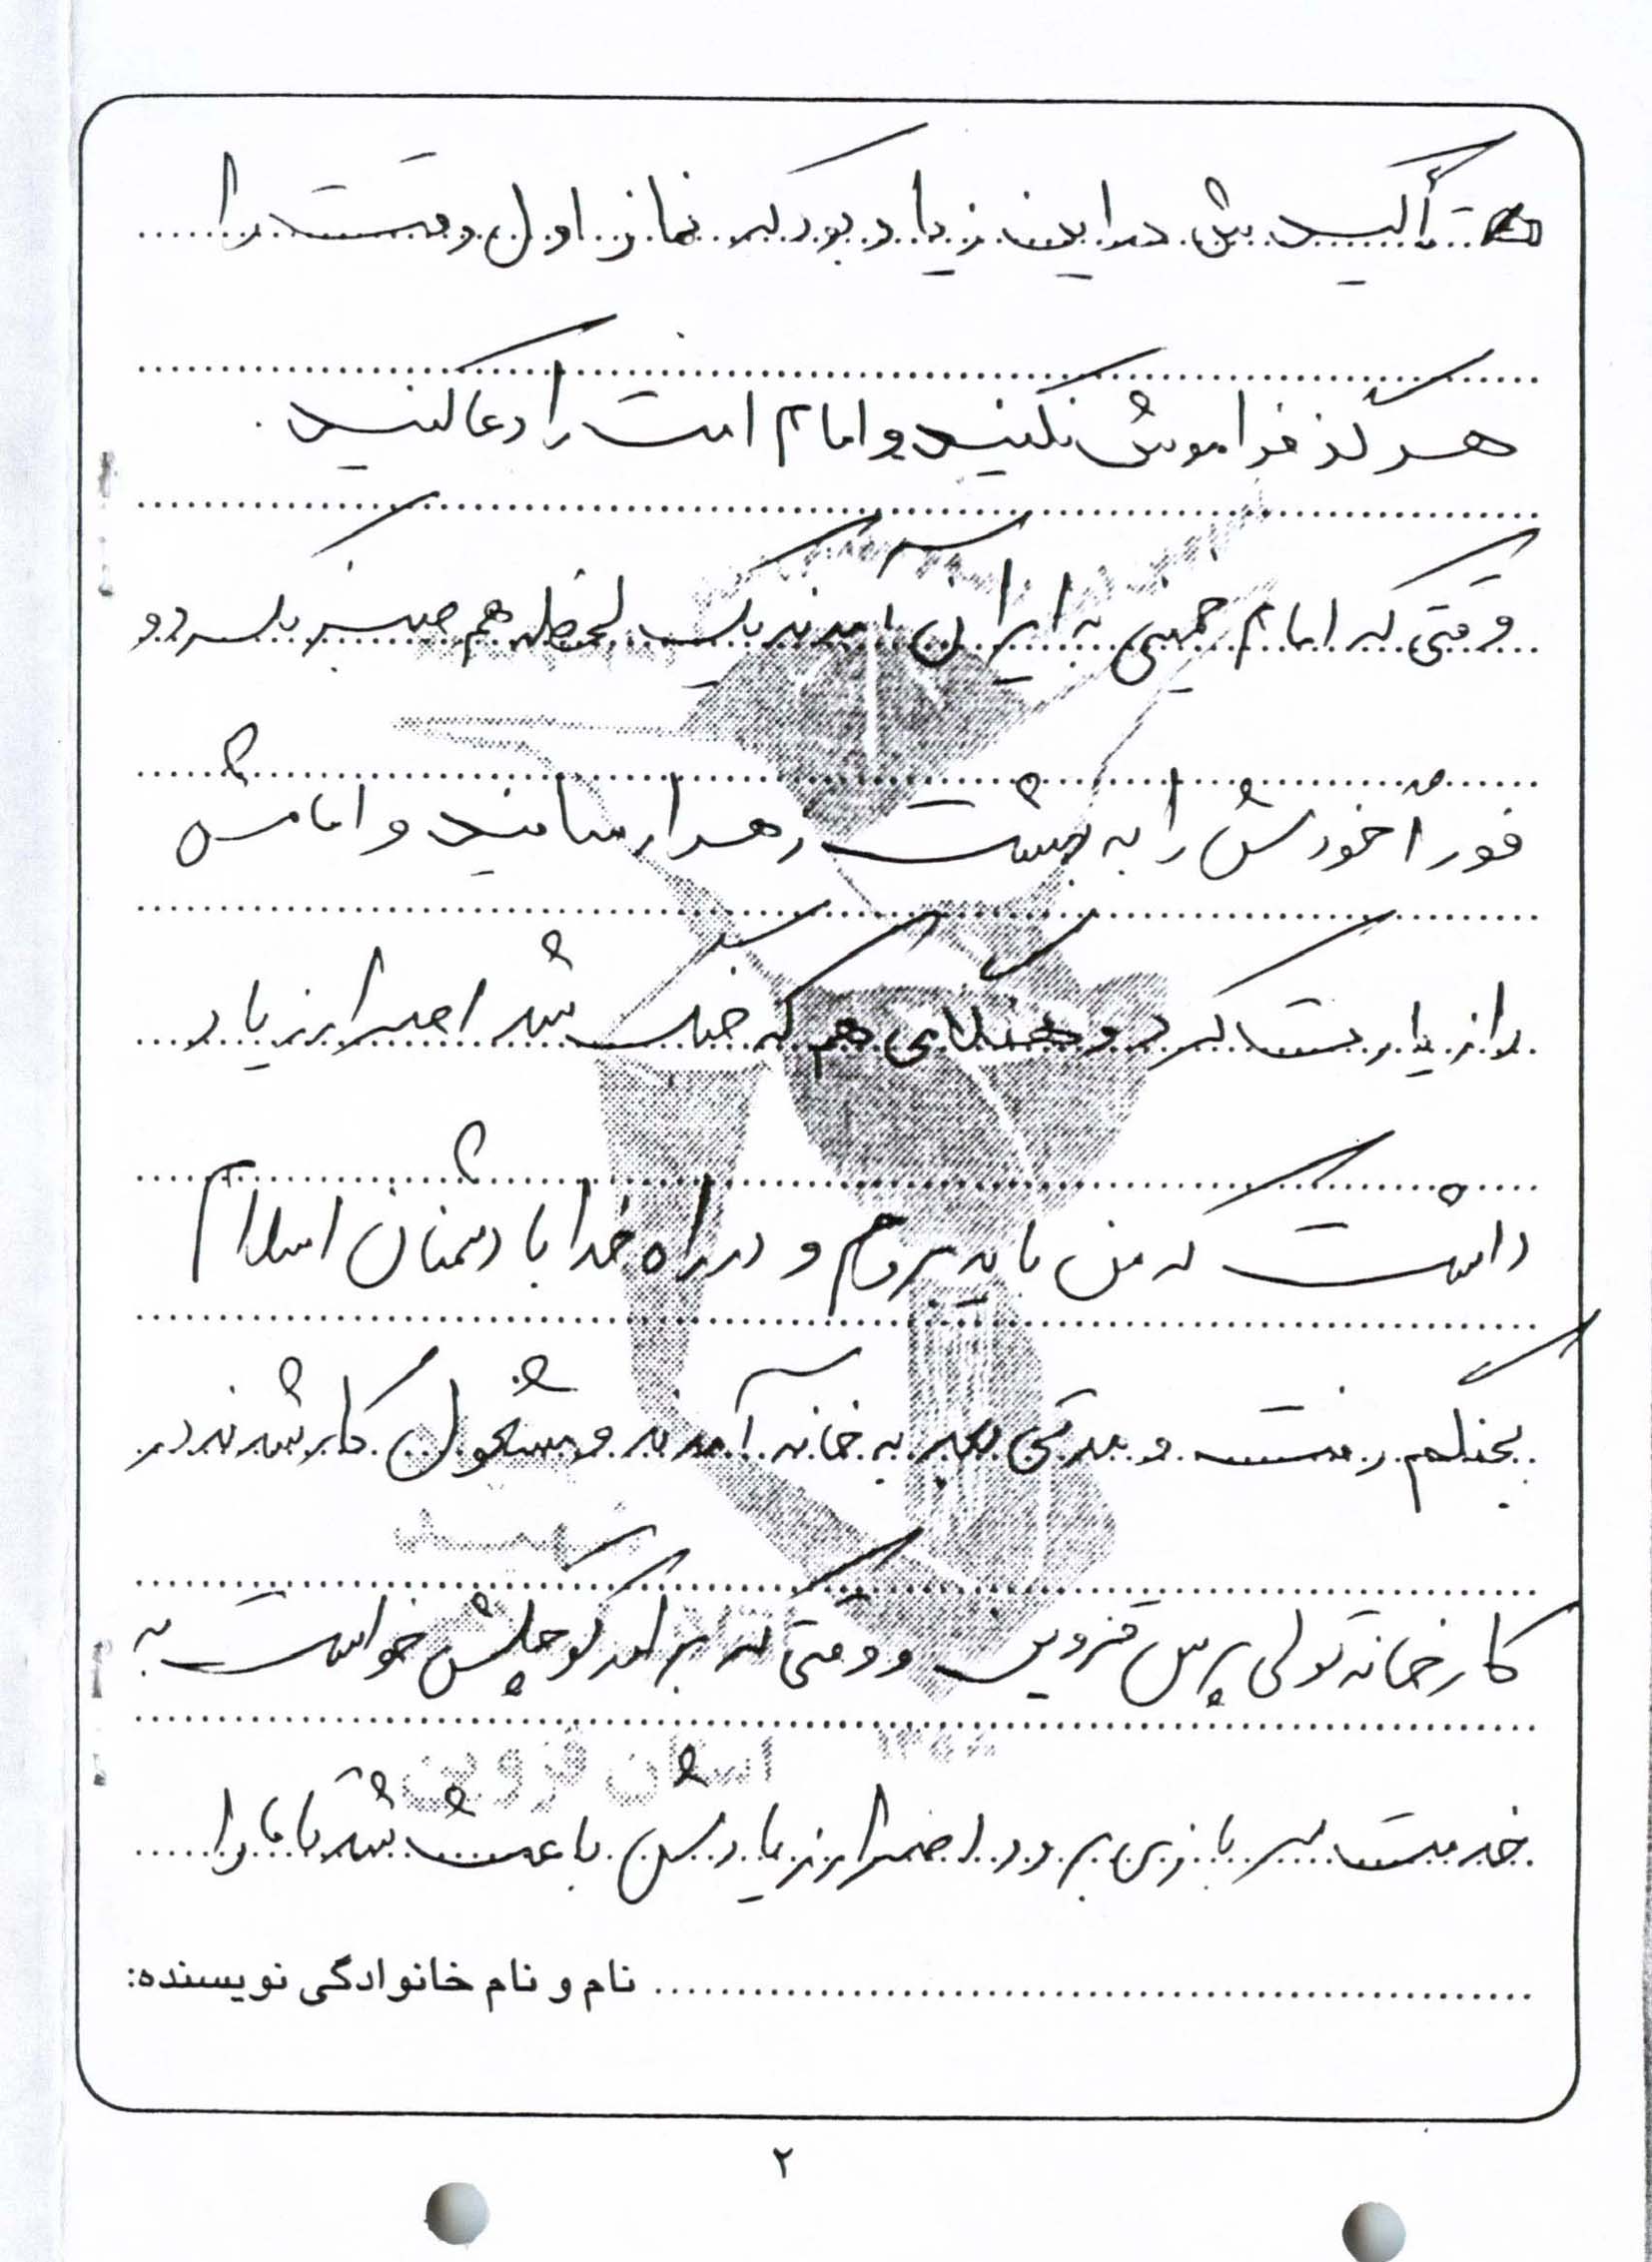 تأکیدش در این زیاد بود که نماز اول وقت را
هرگز فراموش نکنید و امام امت را دعا کنید.
وقتی که امام خمینی به ایران آمدند یک لحظه هم صبر نکرد و
فوراً خودش را به بهشت زهرا رسانید و امامش
را زیارت کرد و هنگامی هم که جنگ شد اصرار زیاد
داشت که من باید بروم و در راه خدا با دشمنان اسلام
بجنگم رفت و مدتی بعد به خانه آمدند و مشغول کار شدند در
کارخانه تولی پرس قزوین و وقتی که برادر کوچکش خواست به
خدمت سربازی برود اصرار زیادش باعث شد تا ما را
نام و نام خانوادگی نویسنده:
۲
شهید
استان قزوین